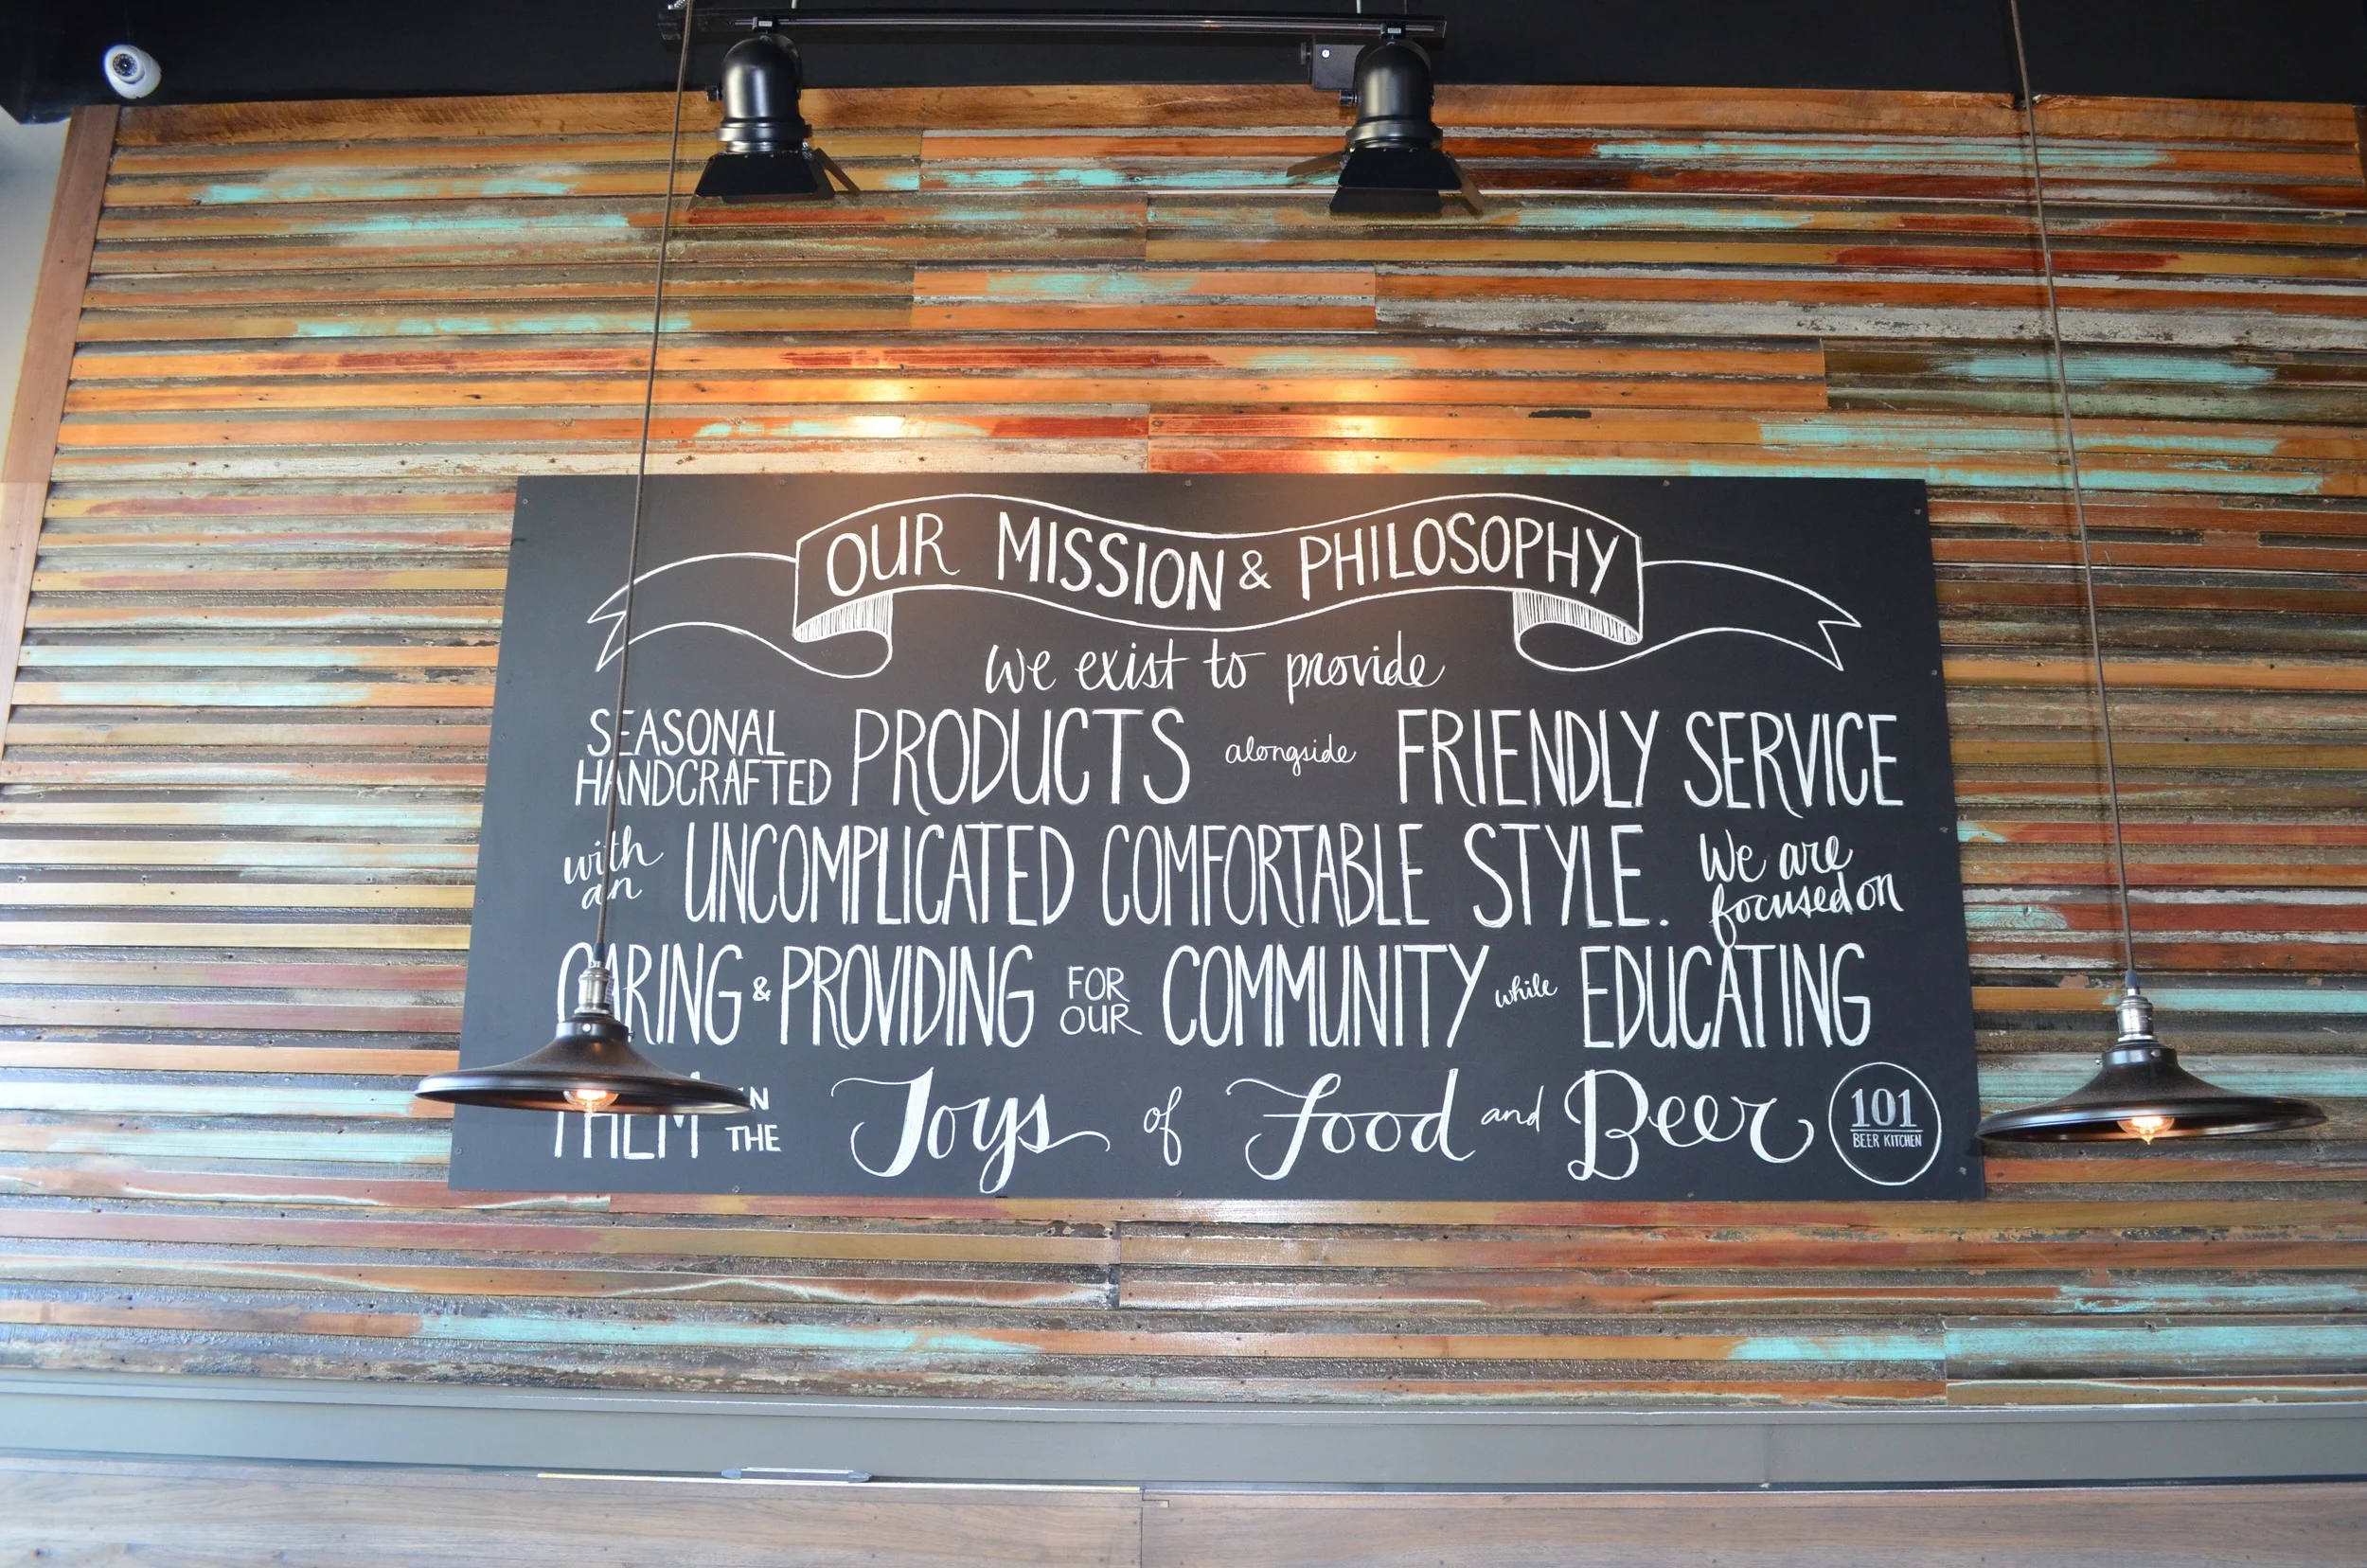 OUR MISSION & PHILOSOPHY
we exist to provide
SEASONAL HANDCRAFTED PRODUCTS alongside FRIENDLY SERVICE
with an UNCOMPLICATED COMFORTABLE STYLE. We are focused on
CARING & PROVIDING FOR OUR COMMUNITY while EDUCATING
THEM IN THE Joys of Food and Beer
101
BEER KITCHEN